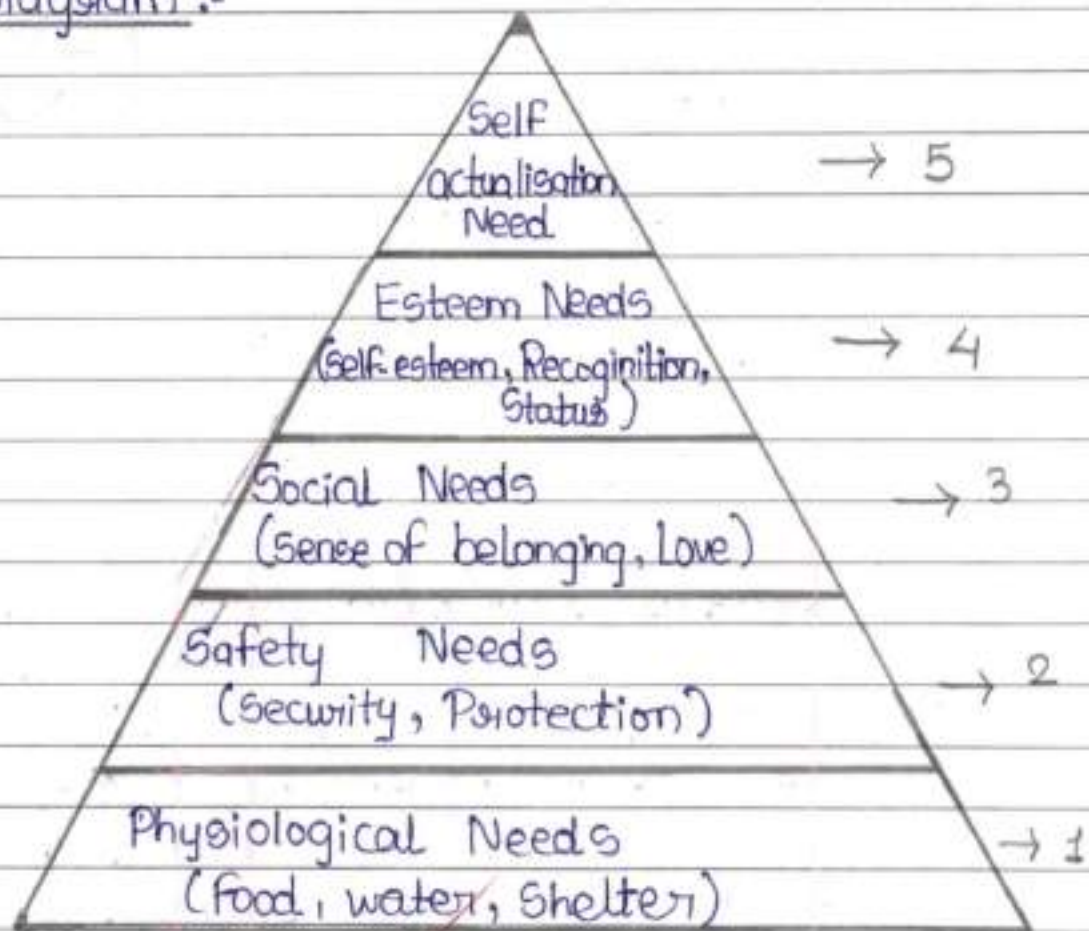 Self
actualisation
Need
→ 5
Esteem Needs
(self-esteem, Recoginition,
Status)
→ 4
Social Needs
(Sense of belonging, Love)
→ 3
Safety Needs
(Security, Protection)
→ 2
Physiological Needs
(food, water, Shelter)
→ 1